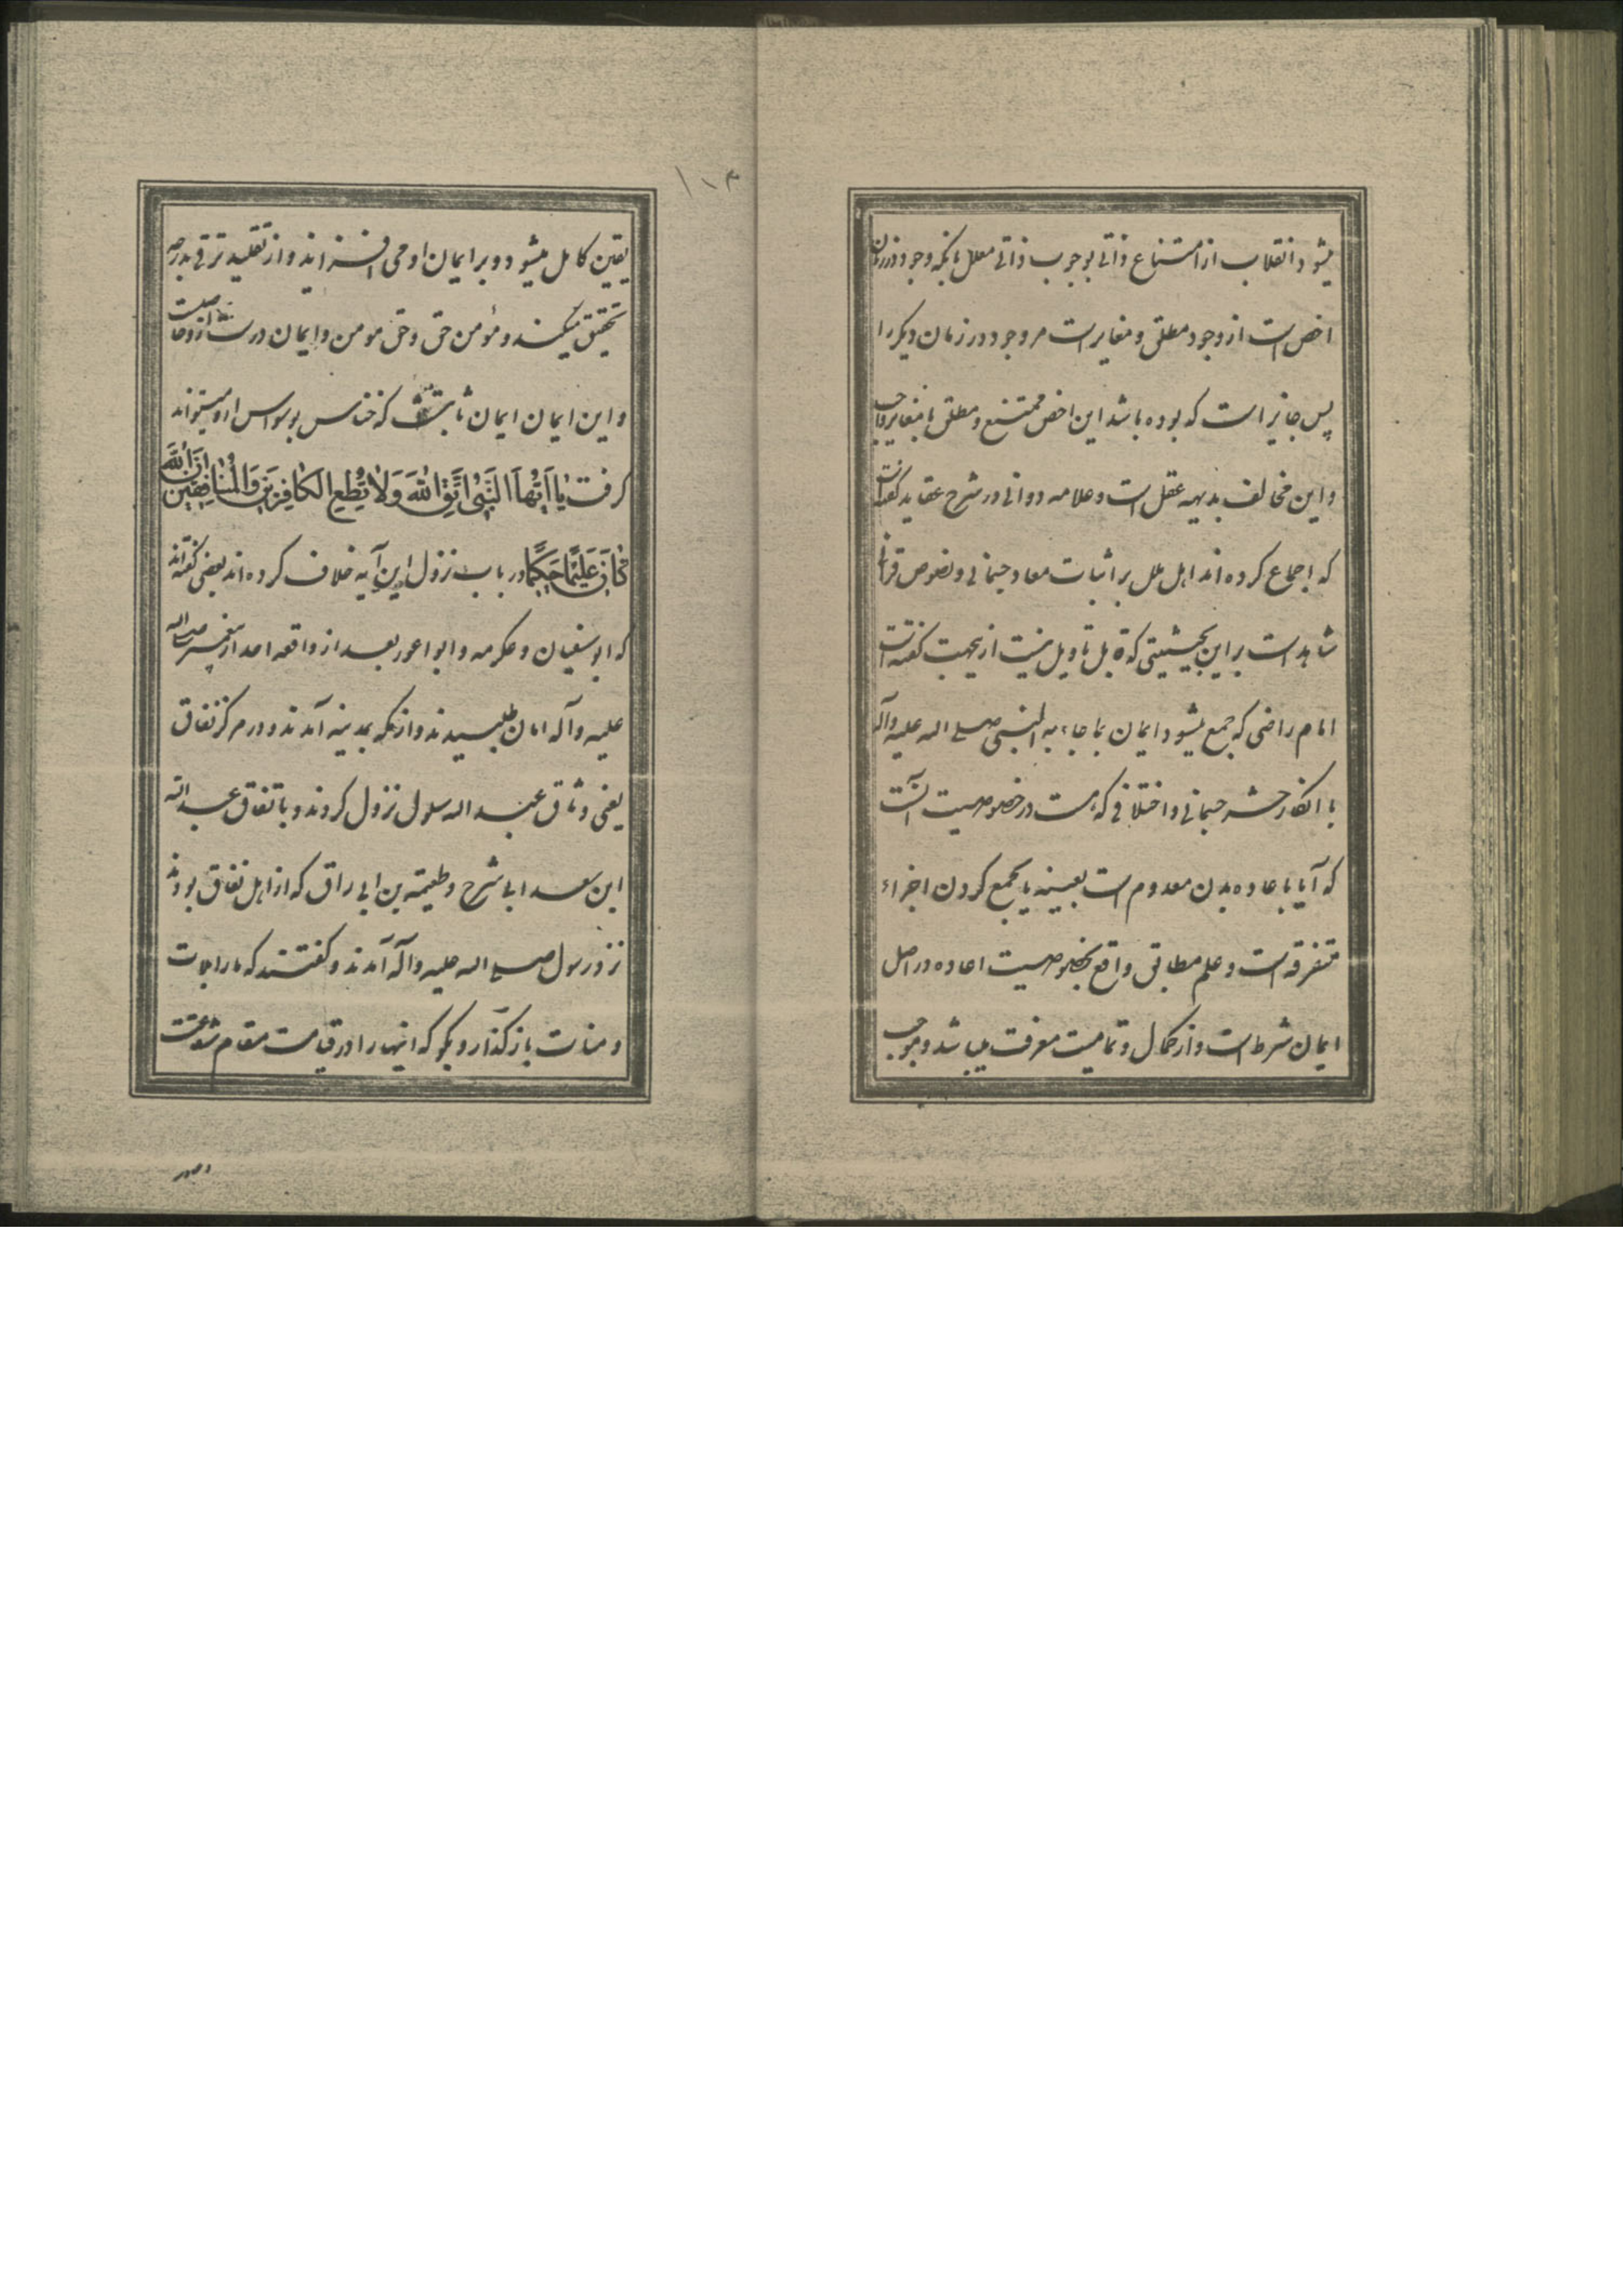 میشود انقلاب از امتناع ذاتی بوجوب ذاتی معلل بانکه وجود در زمان
اخص است از وجود مطلق و مغایر است مر وجود در زمان دیکر را
پس جایز است که بوده باشد این اخص ممتنع و مطلق یا مغایر واجب
و این مخالف بدیهه عقل است و علامه دوانی در شرح عقاید کفته است
که اجماع کرده اند اهل ملل بر اثبات معاد جسمانی و نصوص قرآنی
شاهد است بر این بحیثیتی که قابل تاویل نیست ازیجهت کفته است
امام راضی که جمع نمیشود ایمان بما جاء به النبی صلی الله علیه وآله
با انکار حشر جسمانی و اختلافی که هست در خصوصیت آنست
که آیا باعاده بدن معدوم است بعینه یا بجمع کردن اجزاء
متفرقه است و علم مطابق واقع بخصوصیت اعاده در اصل
ایمان شرط است و از کمال و تمامیت معرفت میباشد و موجب
۱۰۳
یقین کامل میشود و بر ایمان او می افزاید و از تقلید ترقی بدرجه
تحقیق میکند و مؤمن حق و حق مومن و ایمان در
و این ایمان ایمان ثابت که خناس بوسواس او را نمیتواند
کرفت یا اَیُّهَا النَّبِیُّ اتَّقِ اللّٰهَ وَلَا تُطِعِ الْکَافِرِینَ وَالْمُنَافِقِینَ اِنَّ اللّٰهَ
کَانَ عَلِیمًا حَکِیمًا در باب نزول این آیه خلاف کرده اند بعضی کفته اند
که ابو سفیان و عکرمه و ابو اعور بعد از واقعه احد از پیغمبر صلی الله
علیه وآله امان طلبیدند و از مکه بمدینه آمدند و در مرکز نفاق
یعنی وثاق عبد الله سلول نزول کردند و باتفاق عبد الله
ابن سعد ابی شرح و طعیمة بن ابی راق که از اهل نفاق بودند
نزد رسول صلی الله علیه وآله آمدند و کفتند که ما را بلات
و منات باز کذار و بکو که اینها را در قیامت مقام شفاعتست